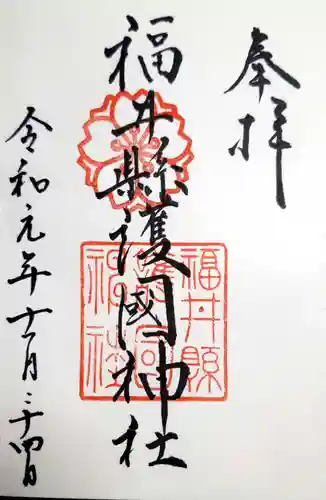 奉拝
福井縣護國神社
福井縣
護國
神社
令和元年十一月二十四日